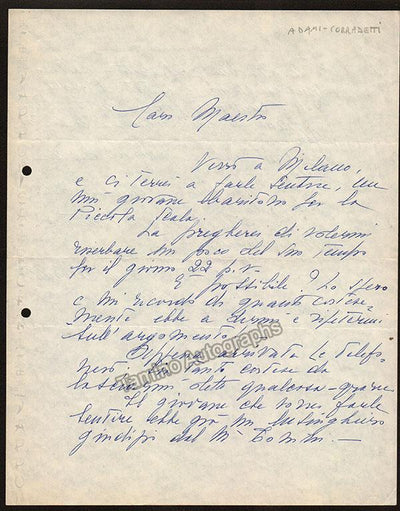 ADAMI-CORRADETTI
Caro Maestro
Verrò a Milano,
e ci terrei a farle sentire, un
mio giovane baritono per la
Piccola Scala.
La pregherei di volermi
riserbare un poco del suo tempo
per il giorno 22 p.v.
E' possibile? Lo spero
e mi ricordo di quanto cortese
mente ebbe a dirmi e riferirmi
sull'argomento.
Appena arrivata Le telefo
nerò
tanto cortese da
lasciarmi detto qualcosa - grazie
Il giovane che vorrei farle
sentire ebbe già un lusinghiero
giudizio dal M°
Tamino Autographs